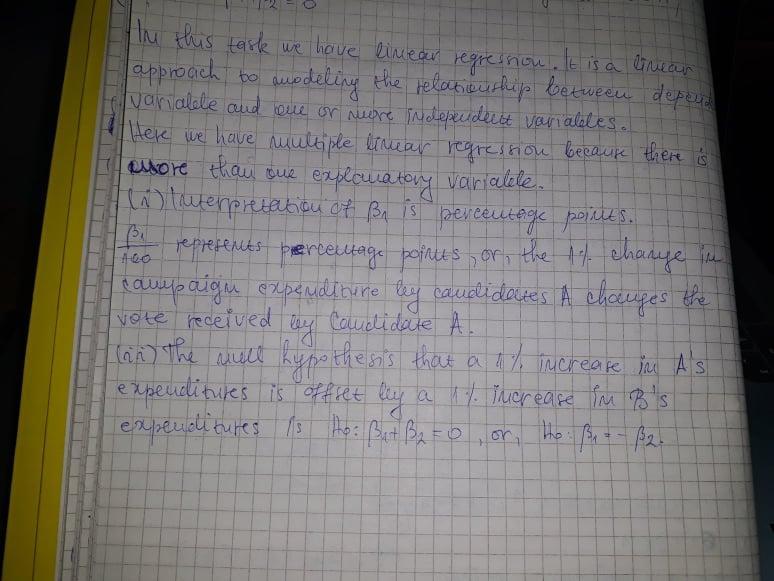 = 0
In this task we have linear regression. It is a linear
approach to modeling the relationship between depend
variable and one or more independent variables.
Here we have multiple linear regression because there is
more than one explanatory variable.
(i) Interpretation of β₁ is percentage points.
β₁/100 represents percentage points, or, the 1% change in
campaign expenditure by candidates A changes the
vote received by Candidate A.
(ii) The null hypothesis that a 1% increase in A's
expenditures is offset by a 1% increase in B's
expenditures is H₀: β₁+β₂=0, or, H₀: β₁=-β₂.